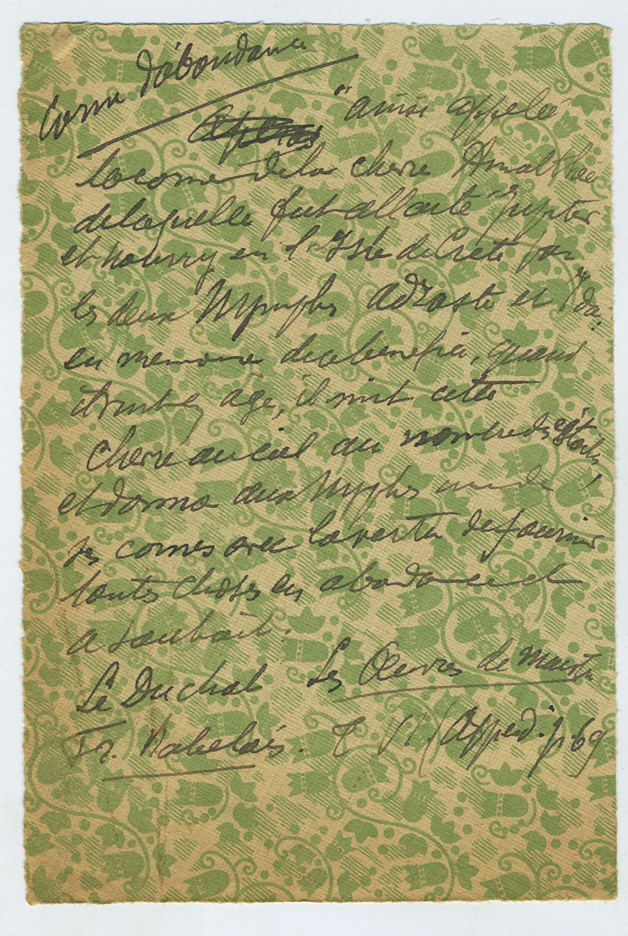 Corne d'abondance
"ainsi appelé
la corne de la chevre Amalthee
de laquelle fut allaité Jupiter
et nourry en l'Isle de Crete par
les deux Nymphes Adraste et Ida:
en memoire de ce benefice, quand
il fut en âge, il mit cette
chevre au ciel au nombre des astres
et donna aux Nymphs une de
ses cornes avec la vertu de fournir
toutes choses en abondance et
a souhait.
Le Duchat Les Oeuvres de maistre
Fr. Rabelais. T VI (Apped. p. 69